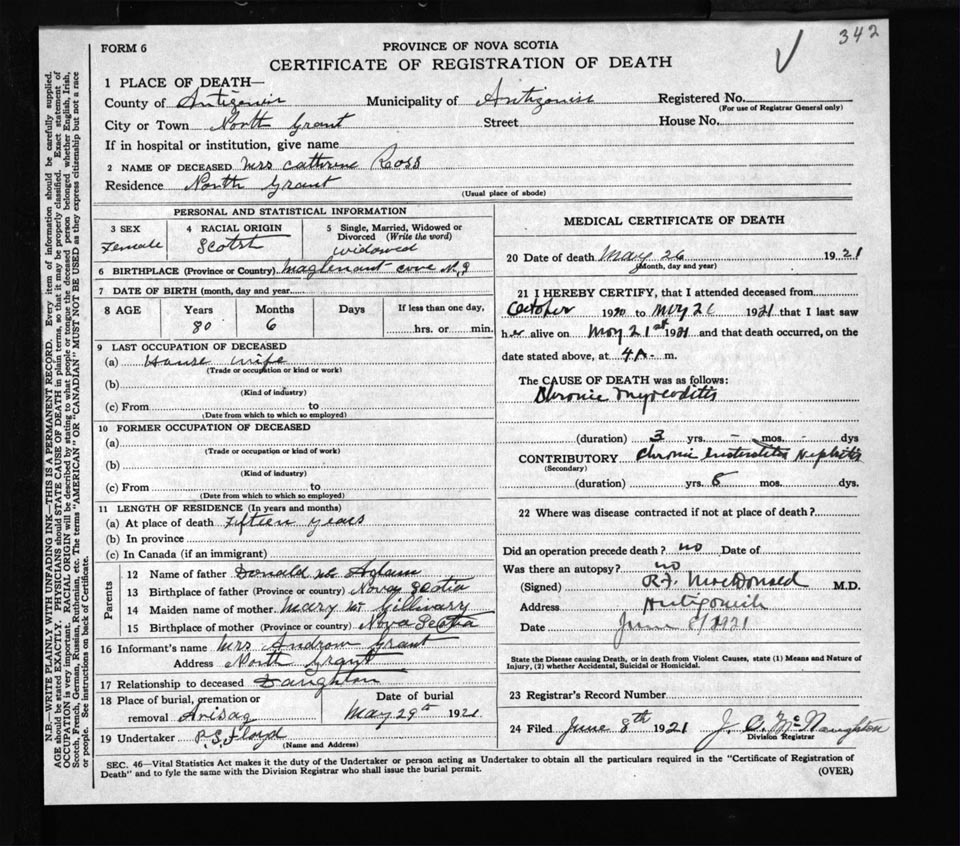 342
FORM 6
PROVINCE OF NOVA SCOTIA
CERTIFICATE OF REGISTRATION OF DEATH
1 PLACE OF DEATH—
County of Municipality of Antigonish Registered No.
(For use of Registrar General only)
City or Town North Grant Street House No.
If in hospital or institution, give name
2 NAME OF DECEASED Mrs Cathrine Ross
Residence North Grant
(Usual place of abode)
PERSONAL AND STATISTICAL INFORMATION
3 SEX 4 RACIAL ORIGIN 5 Single, Married, Widowed or Divorced (Write the word)
Female Scotch widowed
6 BIRTHPLACE (Province or Country) cove N.S
7 DATE OF BIRTH (month, day and year)
8 AGE Years Months Days If less than one day,
80 6 hrs. or min.
9 LAST OCCUPATION OF DECEASED
(a) House wife
(Trade or occupation or kind of work)
(b)
(Kind of industry)
(c) From to
(Date from which to which so employed)
10 FORMER OCCUPATION OF DECEASED
(a)
(Trade or occupation or kind of work)
(b)
(Kind of industry)
(c) From to
(Date from which to which so employed)
11 LENGTH OF RESIDENCE (In years and months)
(a) At place of death Fifteen years
(b) In province
(c) In Canada (if an immigrant)
Parents
12 Name of father Donald Mc
13 Birthplace of father (Province or country) Nova Scotia
14 Maiden name of mother Mary Mc Gillivary
15 Birthplace of mother (Province or country) Nova Scotia
16 Informant's name Mrs Andrew Grant
Address North Grant
17 Relationship to deceased Daughter
18 Place of burial, cremation or removal Arisag Date of burial May 29th 1921
19 Undertaker P.S. Floyd
(Name and Address)
MEDICAL CERTIFICATE OF DEATH
20 Date of death May 26 1921
(Month, day and year)
21 I HEREBY CERTIFY, that I attended deceased from
October 1920 to May 21 1921 that I last saw
her alive on May 21st 1921 and that death occurred, on the
date stated above, at 4 A. m.
The CAUSE OF DEATH was as follows:
Chronic
(duration) 3 yrs. - mos. - dys
CONTRIBUTORY Chronic Nephritis
(Secondary)
(duration) yrs. 5 mos. dys.
22 Where was disease contracted if not at place of death?
Did an operation precede death? no Date of
Was there an autopsy? no
(Signed) R.F. McDonald M.D.
Address Antigonish
Date June 1921
State the Disease causing Death, or in death from Violent Causes, state (1) Means and Nature of
Injury, (2) whether Accidental, Suicidal or Homicidal.
23 Registrar's Record Number
24 Filed June 8th 1921 J. McNaughton
Division Registrar
SEC. 46—Vital Statistics Act makes it the duty of the Undertaker or person acting as Undertaker to obtain all the particulars required in the "Certificate of Registration of
Death" and to fyle the same with the Division Registrar who shall issue the burial permit.
(OVER)
N.B.—WRITE PLAINLY WITH UNFADING INK—THIS IS A PERMANENT RECORD. Every item of information should be carefully supplied.
AGE should be stated EXACTLY. PHYSICIANS should STATE CAUSE OF DEATH in plain terms, so that it may be properly classified. Exact statement of
OCCUPATION is very important. RACIAL ORIGIN will be described by stating to what people or tongue the deceased person belonged whether English, Irish,
Scotch, French, German, Russian, Ruthenian, etc. The terms "AMERICAN" OR "CANADIAN" MUST NOT BE USED as they express citizenship but not a race
or people. See instructions on back of Certificate.